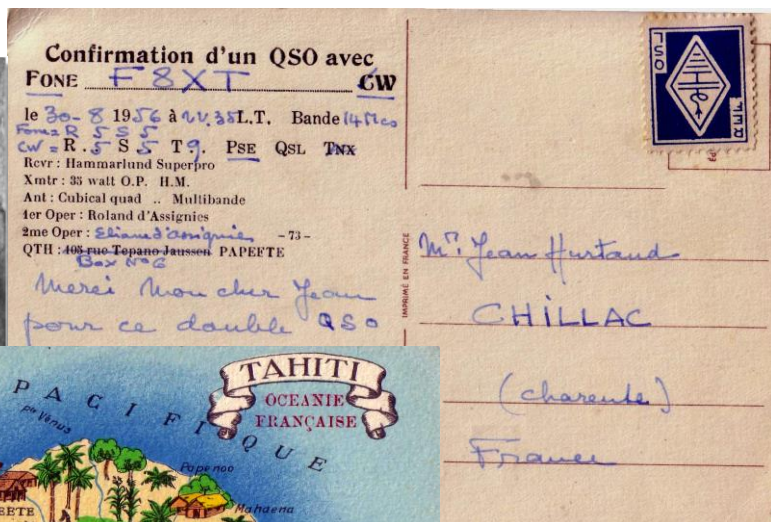 Confirmation d'un QSO avec
FONE F8XT CW
le 30-8 1956 à 22.35 L.T. Bande 14 Mcs
Fone = R 5 S 5
CW = R. 5 S 5 T. 9. PSE QSL TNX
Rcvr : Hammarlund Superpro
Xmtr : 35 watt O.P. H.M.
Ant : Cubical quad .. Multibande
1er Oper : Roland d'Assignies
2me Oper : Eliane d'Assignies - 73 -
QTH : 105 rue Tepano Jaussen PAPEETE
Box No 6
Merci mon cher Jean
pour ce double QSO
IMPRIMÉ EN FRANCE
QSL
REF
Mr. Jean Hurtaud
CHILLAC
(charente)
France
TAHITI
OCEANIE
FRANÇAISE
PACIFIQUE
pte Vénus
Papenoo
Mahaena